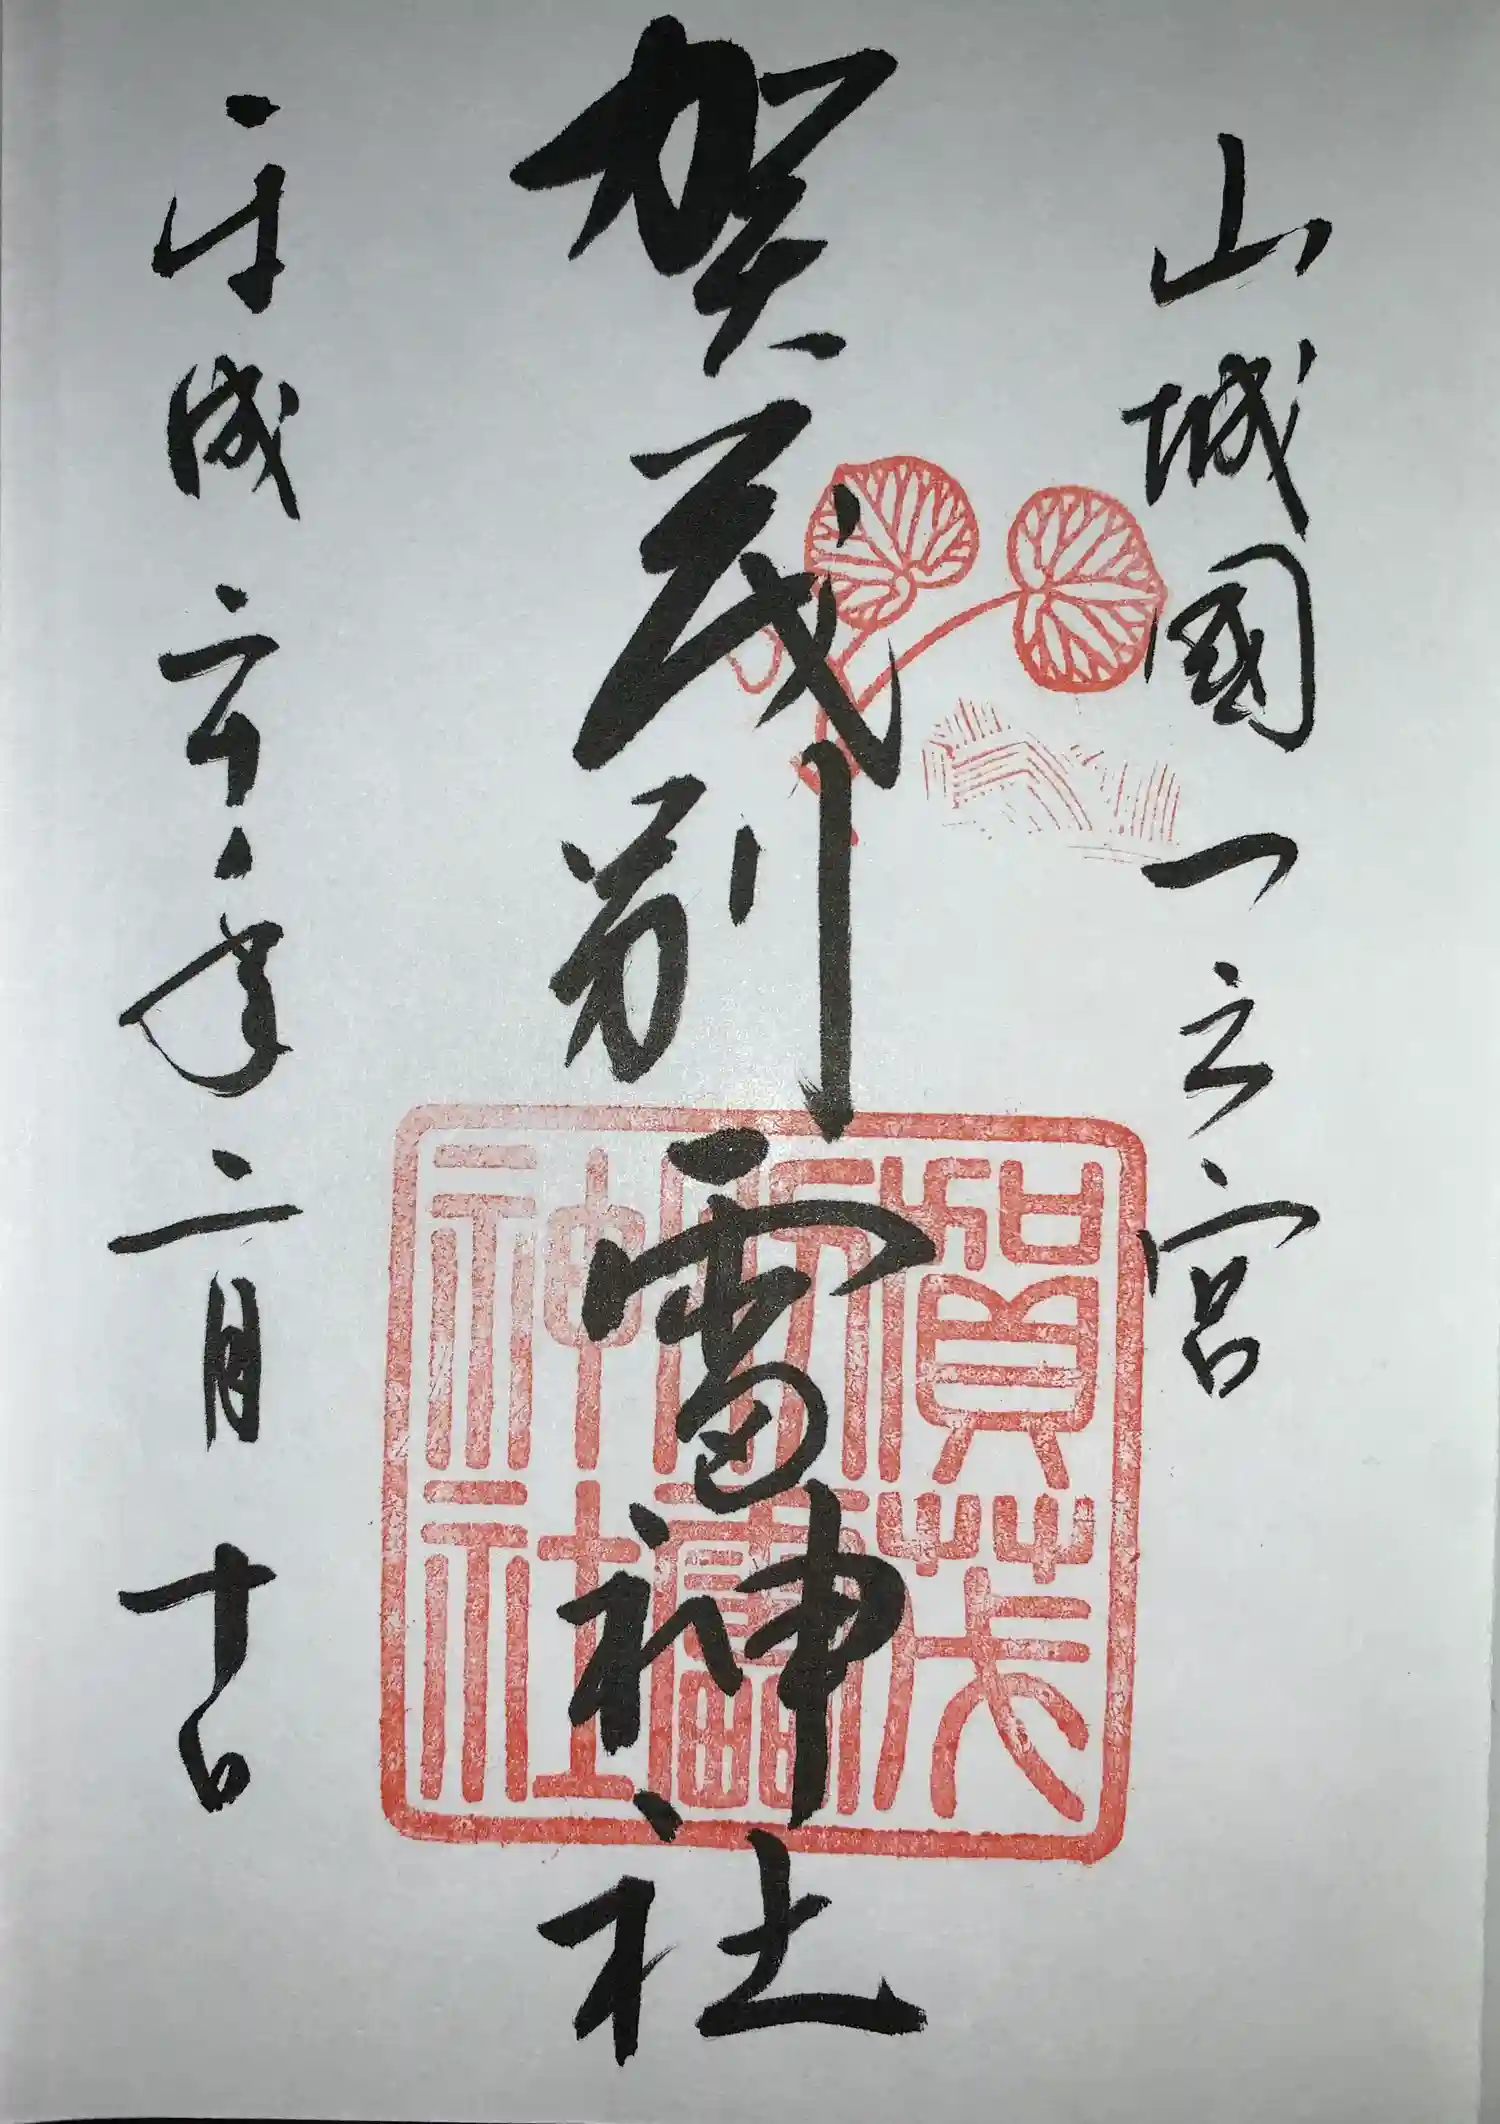 山城國一之宮
賀茂別雷神社
平成二六年二月十日
賀茂
別雷
神社